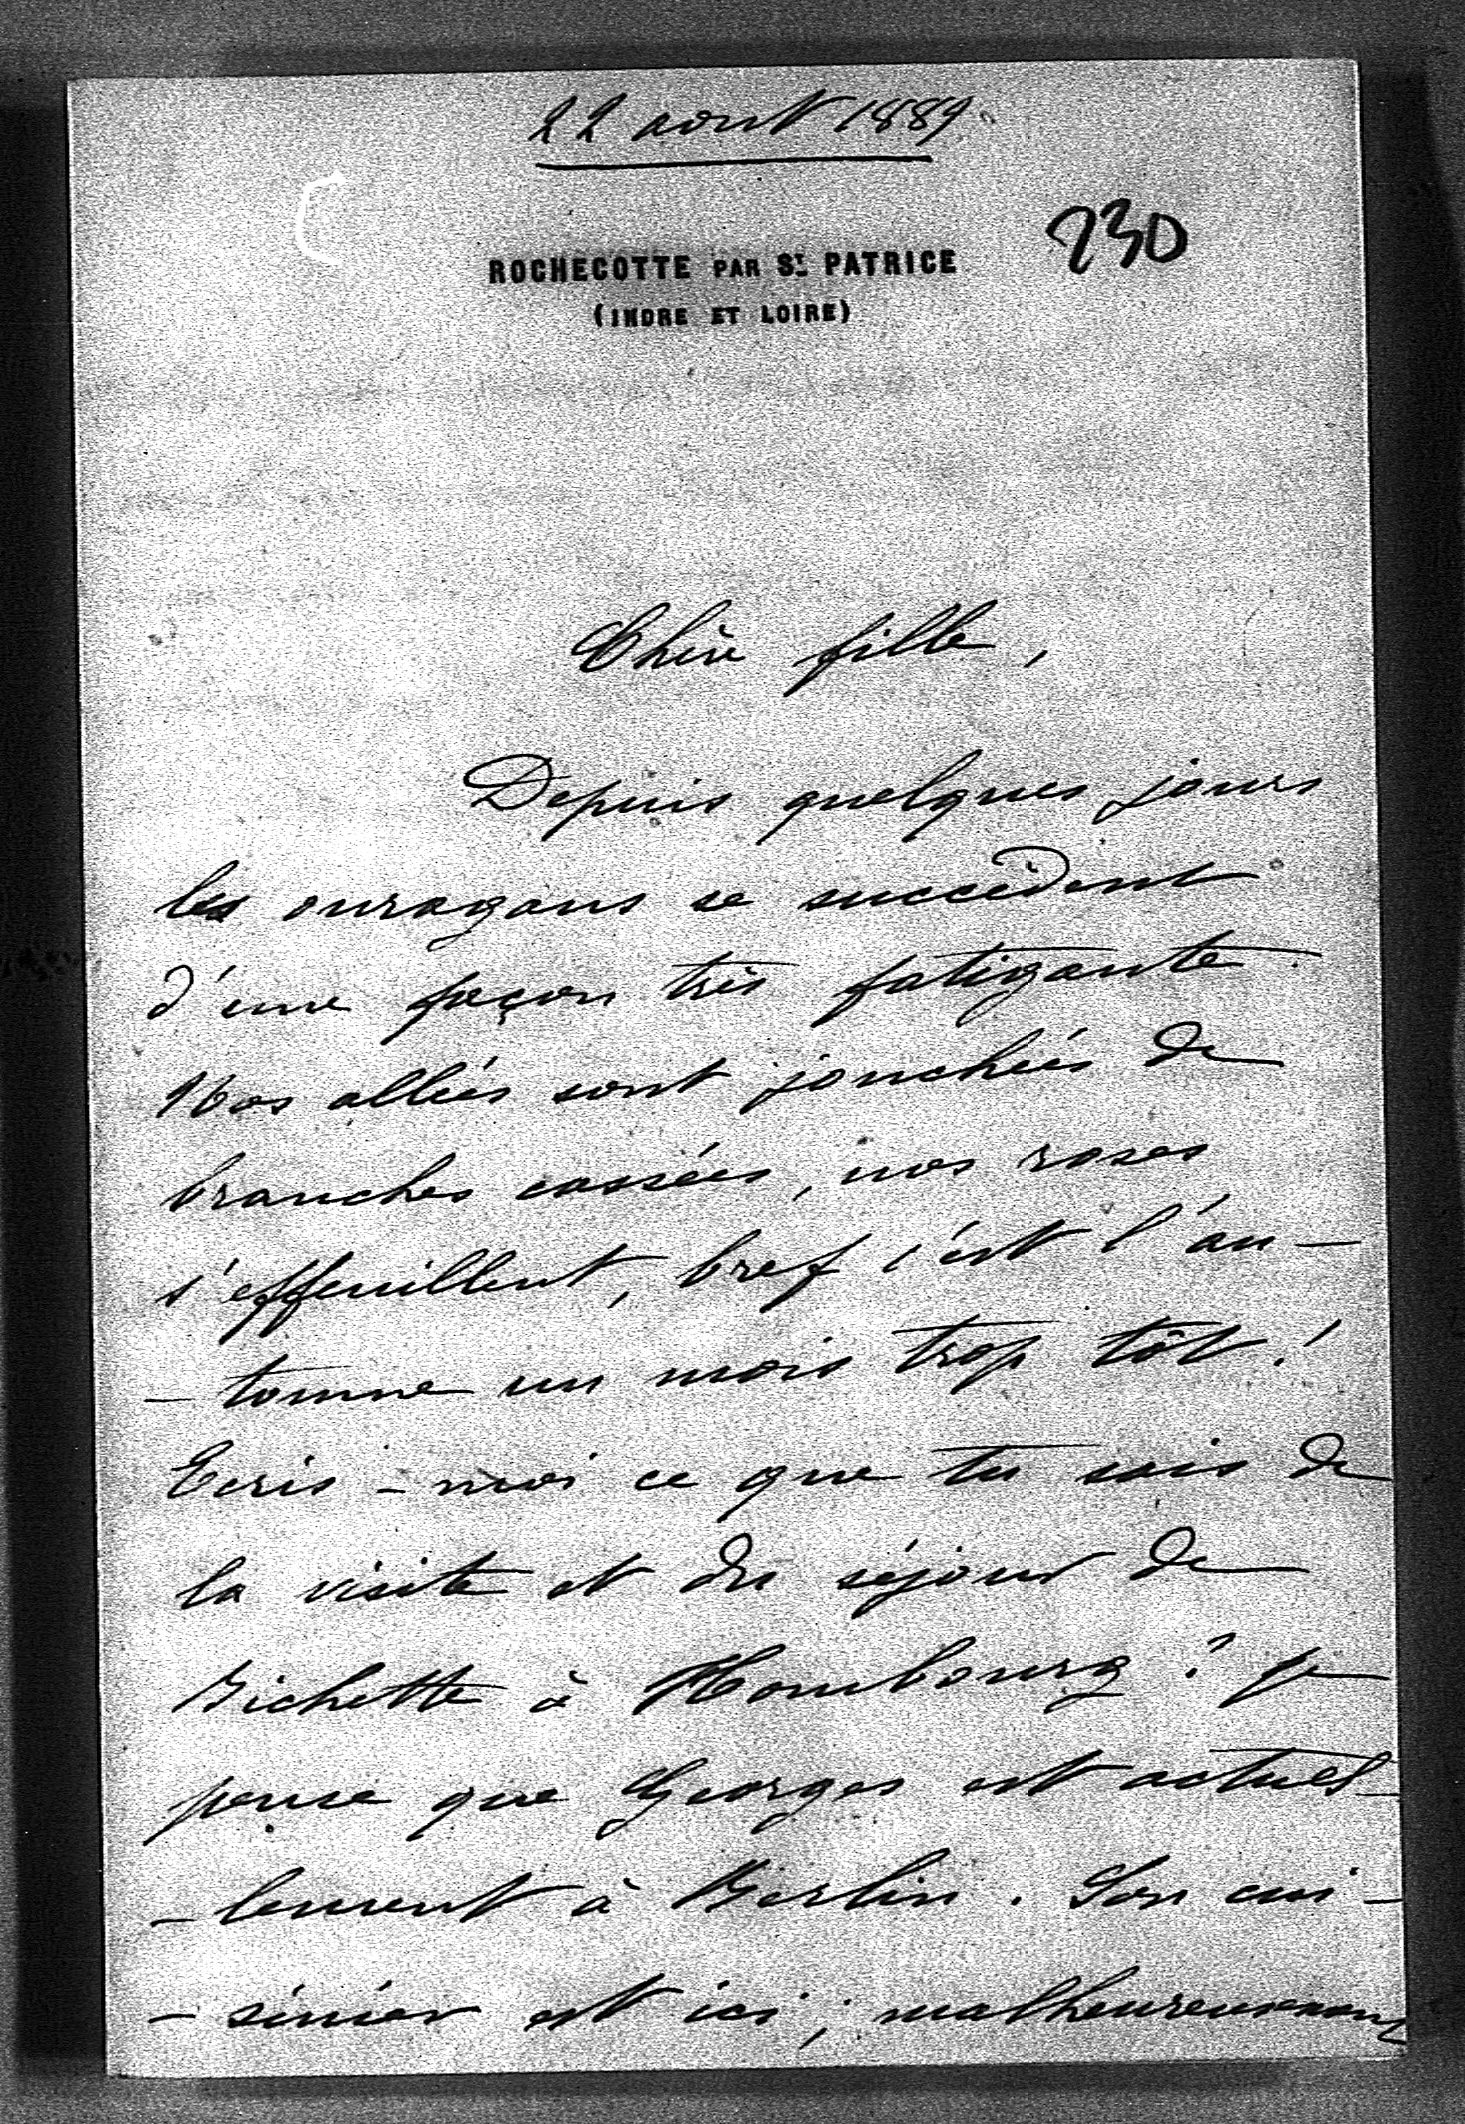 22 août 1889
230
ROCHECOTTE PAR ST PATRICE
(INDRE ET LOIRE)
Chère fille,
Depuis quelques jours
les ouragans se succèdent
d'une façon très fatigante.
Nos allées sont jonchées de
branches cassées, nos roses
s'effeuillent, bref c'est l'au-
-tomne un mois trop tôt!
Ecris-moi ce que tu sais de
la visite et du séjour de
Bichette à Hombourg? Je
pense que Georges est actuel-
-lement à Berlin. Son cui-
-sinier est ici; malheureusement